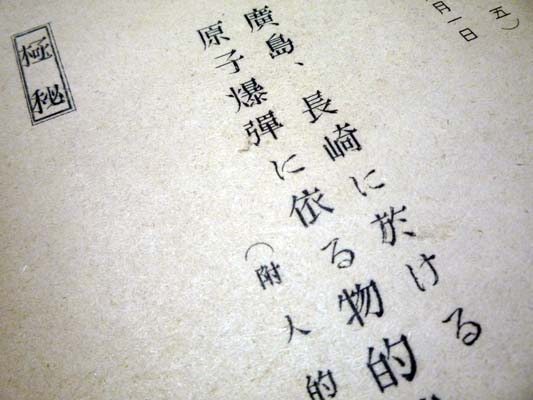 五）
月一日
廣島、長崎に於ける
原子爆彈に依る物的
（附人的
極秘